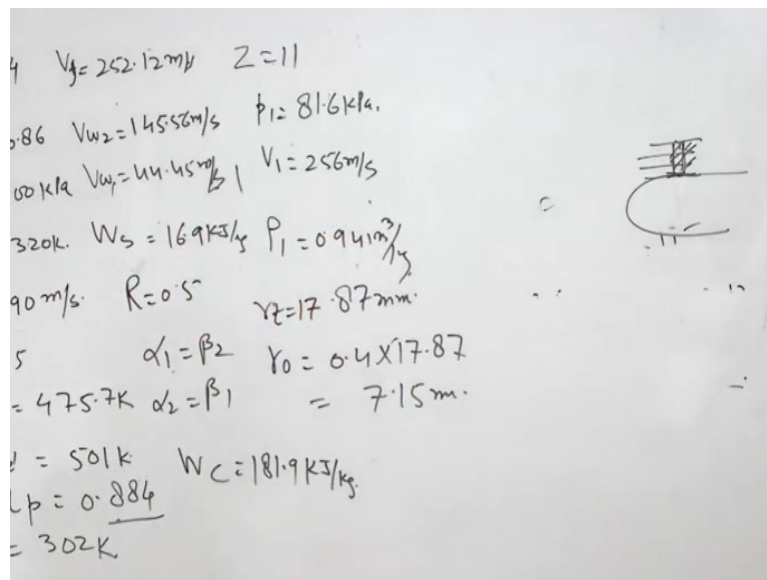 4 Vf = 252.12 m/s Z = 11
0.86 Vw2 = 145.56 m/s p1 = 81.6 kPa.
00 kPa Vw1 = 44.45 m/s V1 = 256 m/s
320K. Ws = 16.9 KJ/kg ρ1 = 0.941 m³/kg
90 m/s. R = 0.5 rt = 17.87 mm.
5 α1 = β2 r0 = 0.4 X 17.87
= 475.7K α2 = β1 = 7.15 m.
= 501K Wc = 181.9 KJ/kg.
p = 0.884
= 302K